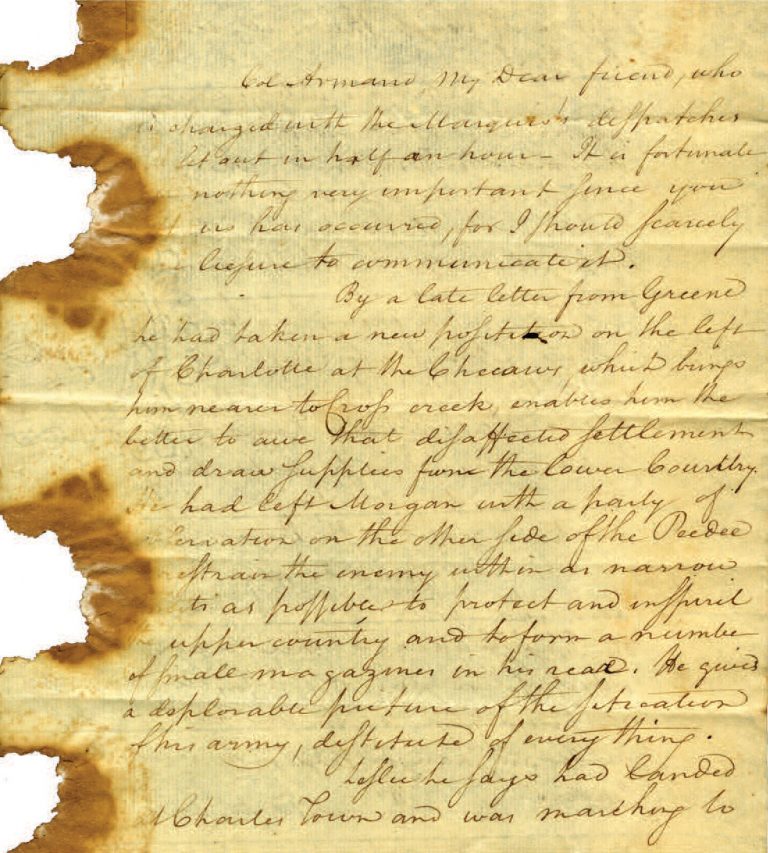 Col Armand, My Dear friend, who
is charged with the Marquis's despatches
set out in half an hour – It is fortunate
nothing very important since you
us has occurred, for I should scarcely
leisure to communicate it.
By a late letter from Greene
he had taken a new position on the left
of Charlotte at the Cheraws, which brings
him nearer to Cross creek, enables him the
better to awe that disaffected settlement
and draw supplies from the lower Country.
He had left Morgan with a party of
ervation on the other side of the Peedee
restrain the enemy within as narrow
its as possible to protect and inspirit
upper country and to form a numbe
of small magazines in his rear. He gives
a deplorable picture of the situation
of his army, destitute of everything.
Leslie he says had landed
at Charles Town and was marching to